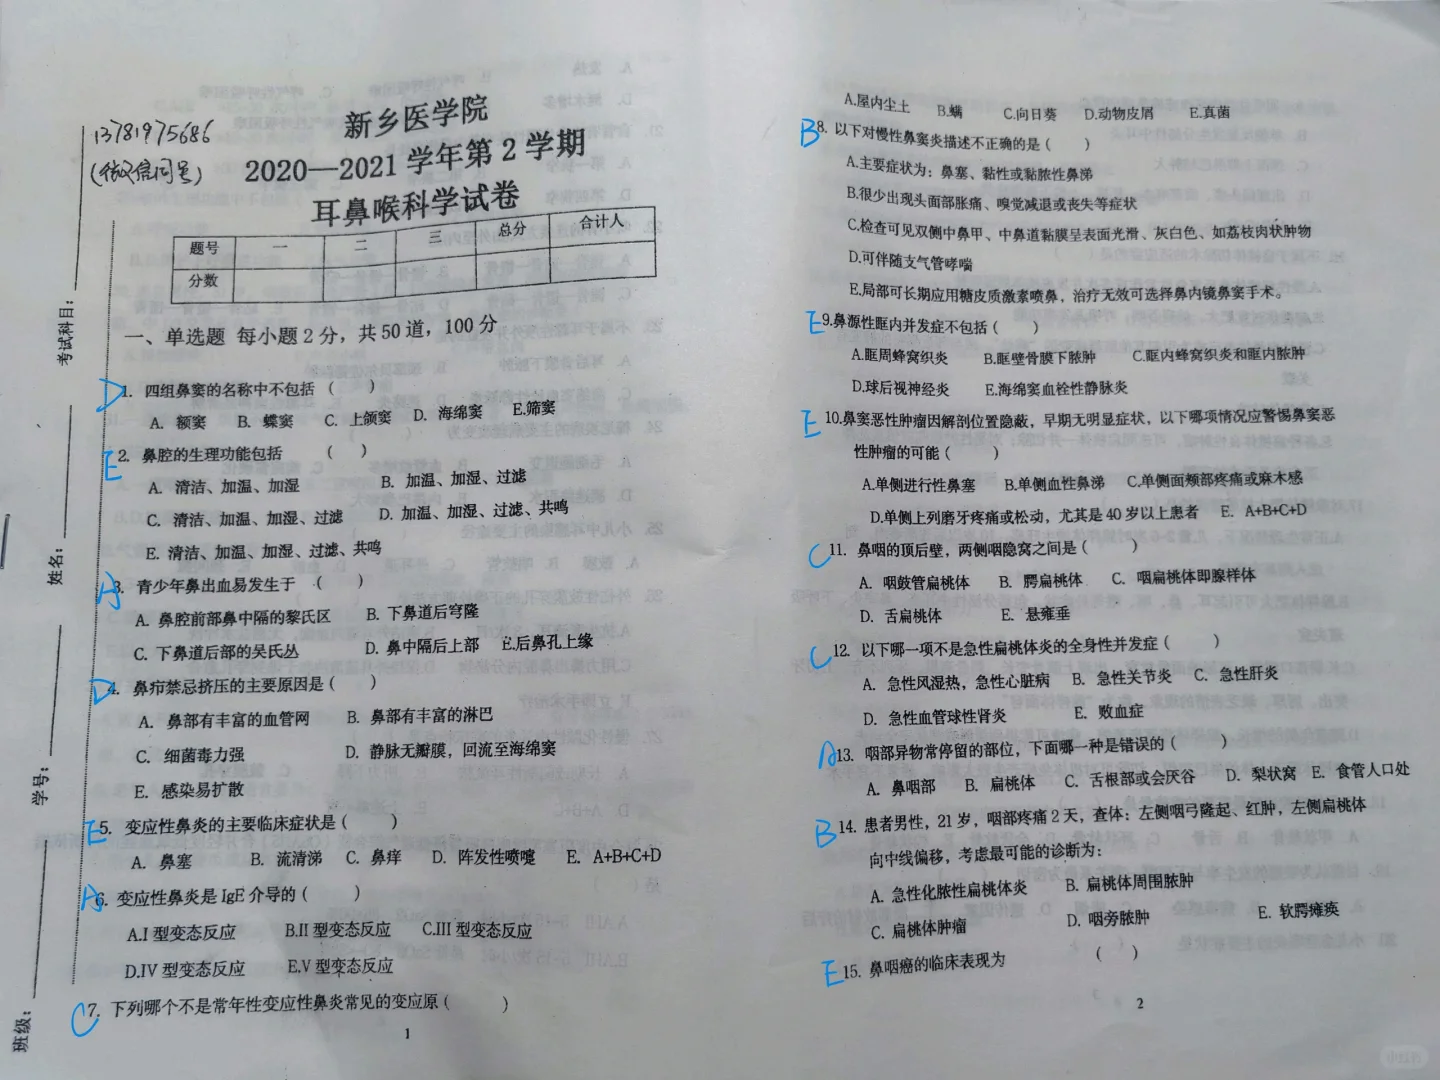 13781975686
(微信同号)
新乡医学院
2020—2021学年第2学期
耳鼻喉科学试卷
题号 一 二 三 总分 合计人
分数
考试科目：
姓名：
学号：
班级：
一、单选题 每小题2分，共50道，100分
D 1. 四组鼻窦的名称中不包括 ( )
A. 额窦 B. 蝶窦 C. 上颌窦 D. 海绵窦 E.筛窦
E 2. 鼻腔的生理功能包括 ( )
A. 清洁、加温、加湿 B. 加温、加湿、过滤
C. 清洁、加温、加湿、过滤 D. 加温、加湿、过滤、共鸣
E. 清洁、加温、加湿、过滤、共鸣
A 3. 青少年鼻出血易发生于 ( )
A. 鼻腔前部鼻中隔的黎氏区 B. 下鼻道后穹隆
C. 下鼻道后部的吴氏丛 D. 鼻中隔后上部 E.后鼻孔上缘
D 4. 鼻疖禁忌挤压的主要原因是( )
A. 鼻部有丰富的血管网 B. 鼻部有丰富的淋巴
C. 细菌毒力强 D. 静脉无瓣膜，回流至海绵窦
E. 感染易扩散
E 5. 变应性鼻炎的主要临床症状是( )
A. 鼻塞 B. 流清涕 C. 鼻痒 D. 阵发性喷嚏 E. A+B+C+D
A 6. 变应性鼻炎是IgE介导的( )
A.I型变态反应 B.II型变态反应 C.III型变态反应
D.IV型变态反应 E.V型变态反应
C 7. 下列哪个不是常年性变应性鼻炎常见的变应原( )
1
A.屋内尘土 B.螨 C.向日葵 D.动物皮屑 E.真菌
B 8. 以下对慢性鼻窦炎描述不正确的是( )
A.主要症状为：鼻塞、黏性或黏脓性鼻涕
B.很少出现头面部胀痛、嗅觉减退或丧失等症状
C.检查可见双侧中鼻甲、中鼻道黏膜呈表面光滑、灰白色、如荔枝肉状肿物
D.可伴随支气管哮喘
E.局部可长期应用糖皮质激素喷鼻，治疗无效可选择鼻内镜鼻窦手术。
E 9.鼻源性眶内并发症不包括( )
A.眶周蜂窝织炎 B.眶壁骨膜下脓肿 C.眶内蜂窝织炎和眶内脓肿
D.球后视神经炎 E.海绵窦血栓性静脉炎
E 10.鼻窦恶性肿瘤因解剖位置隐蔽，早期无明显症状，以下哪项情况应警惕鼻窦恶
性肿瘤的可能( )
A.单侧进行性鼻塞 B.单侧血性鼻涕 C.单侧面颊部疼痛或麻木感
D.单侧上列磨牙疼痛或松动，尤其是40岁以上患者 E. A+B+C+D
C 11. 鼻咽的顶后壁，两侧咽隐窝之间是( )
A. 咽鼓管扁桃体 B. 腭扁桃体 C. 咽扁桃体即腺样体
D. 舌扁桃体 E. 悬雍垂
C 12. 以下哪一项不是急性扁桃体炎的全身性并发症( )
A. 急性风湿热，急性心脏病 B. 急性关节炎 C. 急性肝炎
D. 急性血管球性肾炎 E. 败血症
A 13. 咽部异物常停留的部位，下面哪一种是错误的( )
A. 鼻咽部 B. 扁桃体 C. 舌根部或会厌谷 D. 梨状窝 E. 食管人口处
B 14. 患者男性，21岁，咽部疼痛2天，查体：左侧咽弓隆起、红肿，左侧扁桃体
向中线偏移，考虑最可能的诊断为：
A. 急性化脓性扁桃体炎 B. 扁桃体周围脓肿
C. 扁桃体肿瘤 D. 咽旁脓肿 E. 软腭瘫痪
E 15. 鼻咽癌的临床表现为 ( )
2
小红书